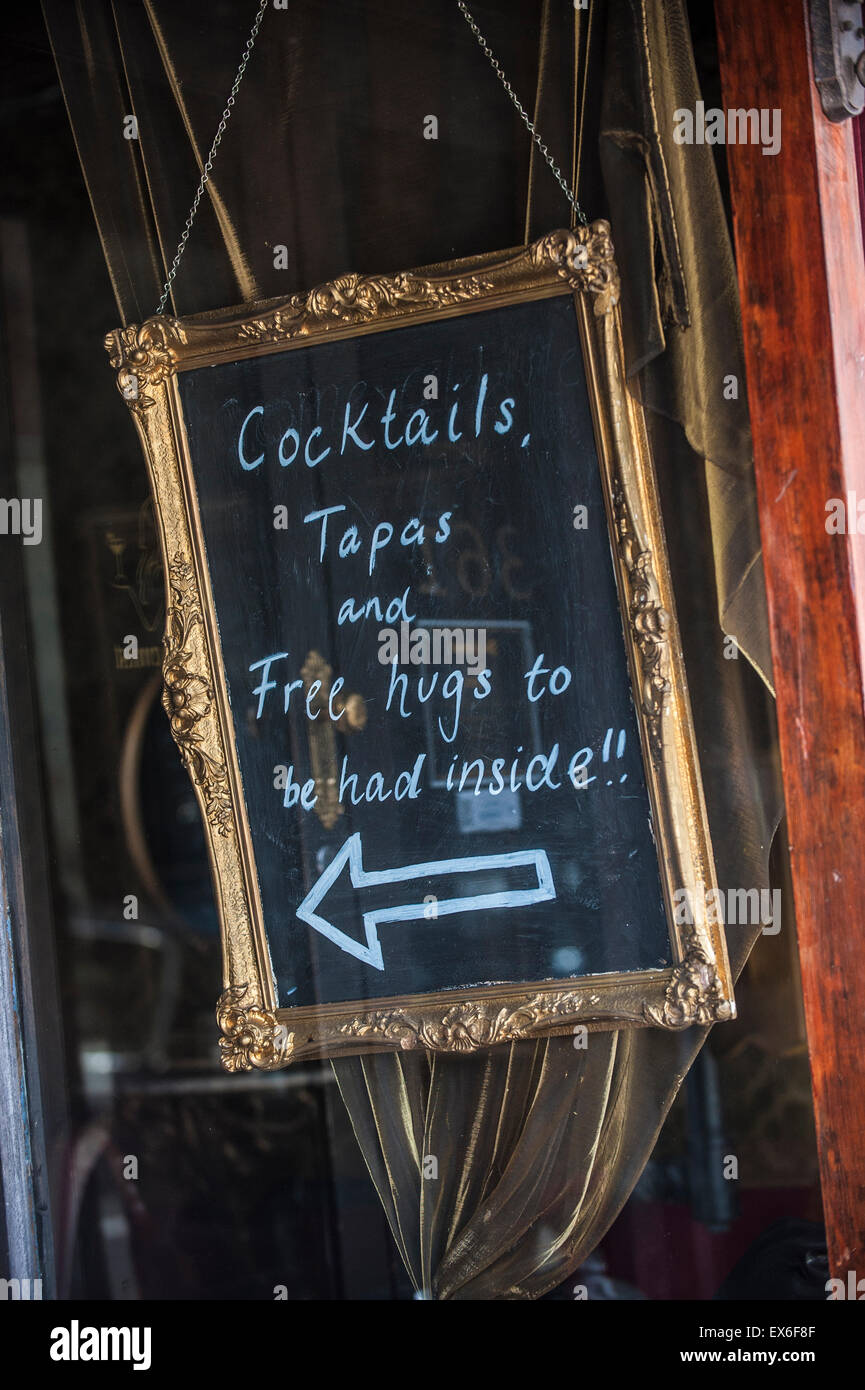 Cocktails,
Tapas
and
Free hugs to
be had inside!!
362
alamy
alamy
Image ID: EX6F8F
www.alamy.com